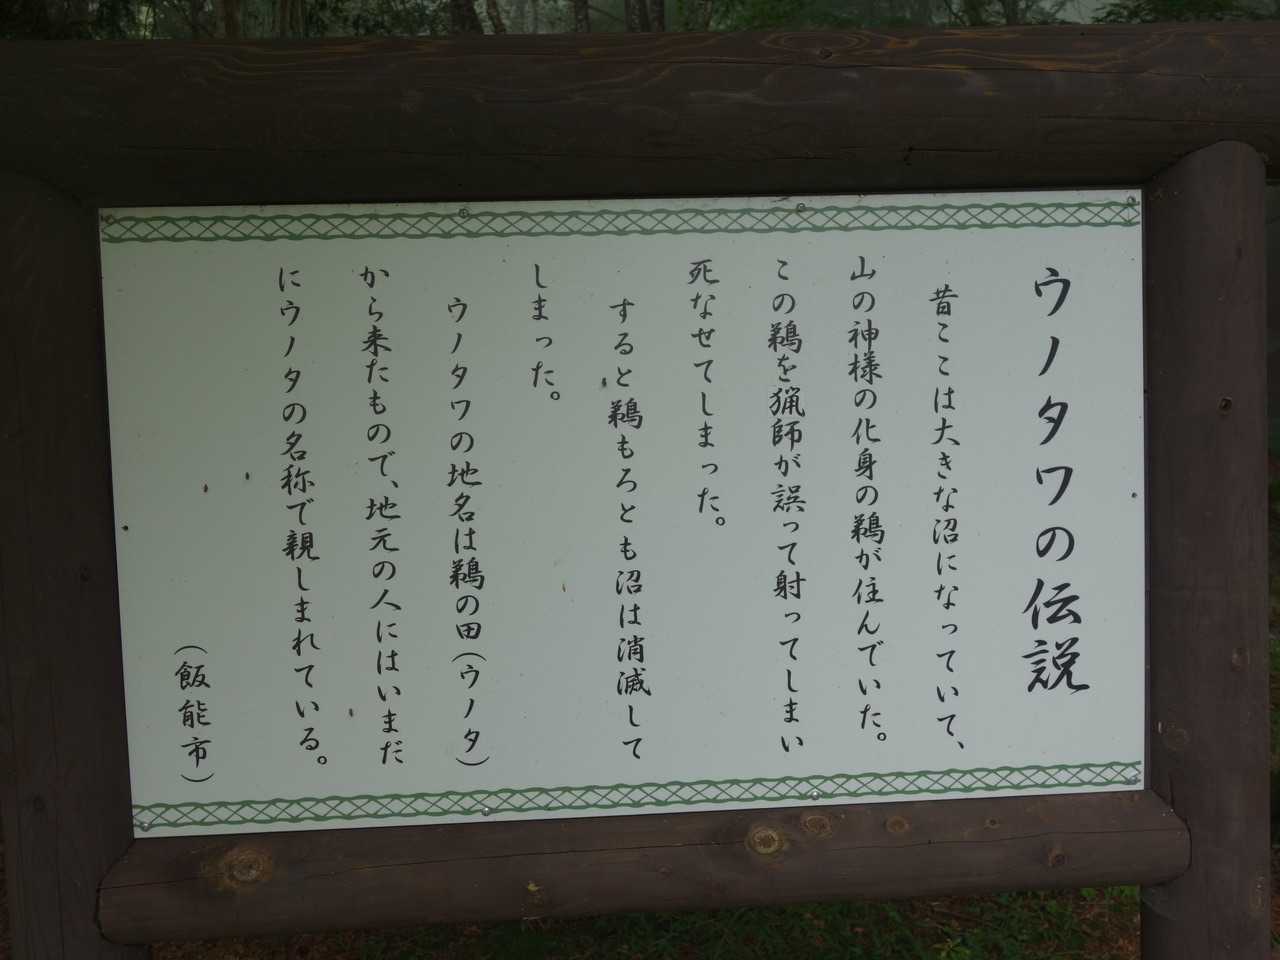 ウノタワの伝説
昔ここは大きな沼になっていて、
山の神様の化身の鵜が住んでいた。
この鵜を猟師が誤って射ってしまい
死なせてしまった。
すると鵜もろとも沼は消滅して
しまった。
ウノタワの地名は鵜の田(ウノタ)
から来たもので、地元の人にはいまだ
にウノタの名称で親しまれている。
(飯能市)